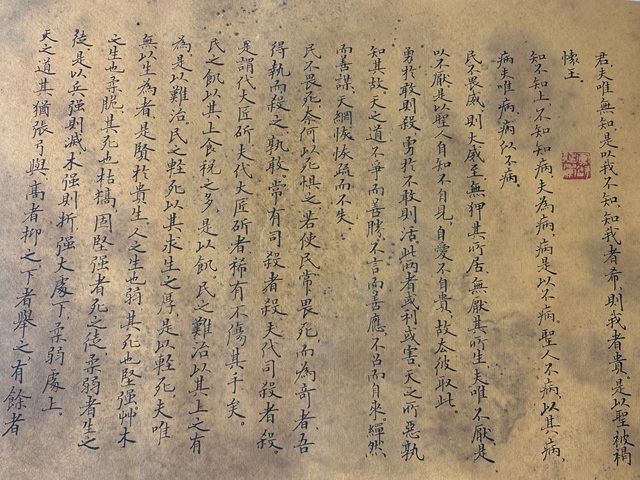 君、夫唯無知、是以我不知、知我者希、則我者貴、是以聖被褐
懷玉、
知不知上、不知知病夫為病、病是以不病、聖人不病、以其病、
病夫唯病、病似不病、
民不畏威、則大威至無押其所居、無厭其所生夫唯不厭是
以不厭、是以聖人自知不自見、自愛不自貴、故去彼取此、
勇於敢則殺、勇於不敢則活、此兩者或利或害、天之所惡孰
知其故、天之道不爭而善勝、不言而善應、不召而自來、繟然
而善謀、天網恢恢疏而不失、
民不畏死奈何以死懼之若使民常畏死而為奇者、吾
得執而殺之、孰敢、常有司殺者殺夫代司殺者殺、
是謂代大匠斫、夫代大匠斫者稀有不傷其手矣、
民之飢以其上食稅之多、是以飢、民之難治以其上之有
為、是以難治、民之輕死以其求生之厚、是以輕死、夫唯
無以生為者、是賢於貴生人之生也弱、其死也堅強艸木
之生也柔脆、其死也枯槁、固堅強者死之徒、柔弱者生之
徒、是以兵強則滅、木強則折、強大處下、柔弱處上、
天之道其猶張弓與、高者抑之下者舉之、有餘者